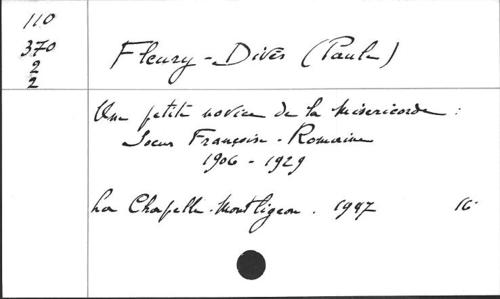 110
370
2
2
Fleury-Divès (Paule)
Une petite novice de la Miséricorde :
Soeur Françoise-Romaine
1906 - 1929
La Chapelle-Montligeon. 1947 16°